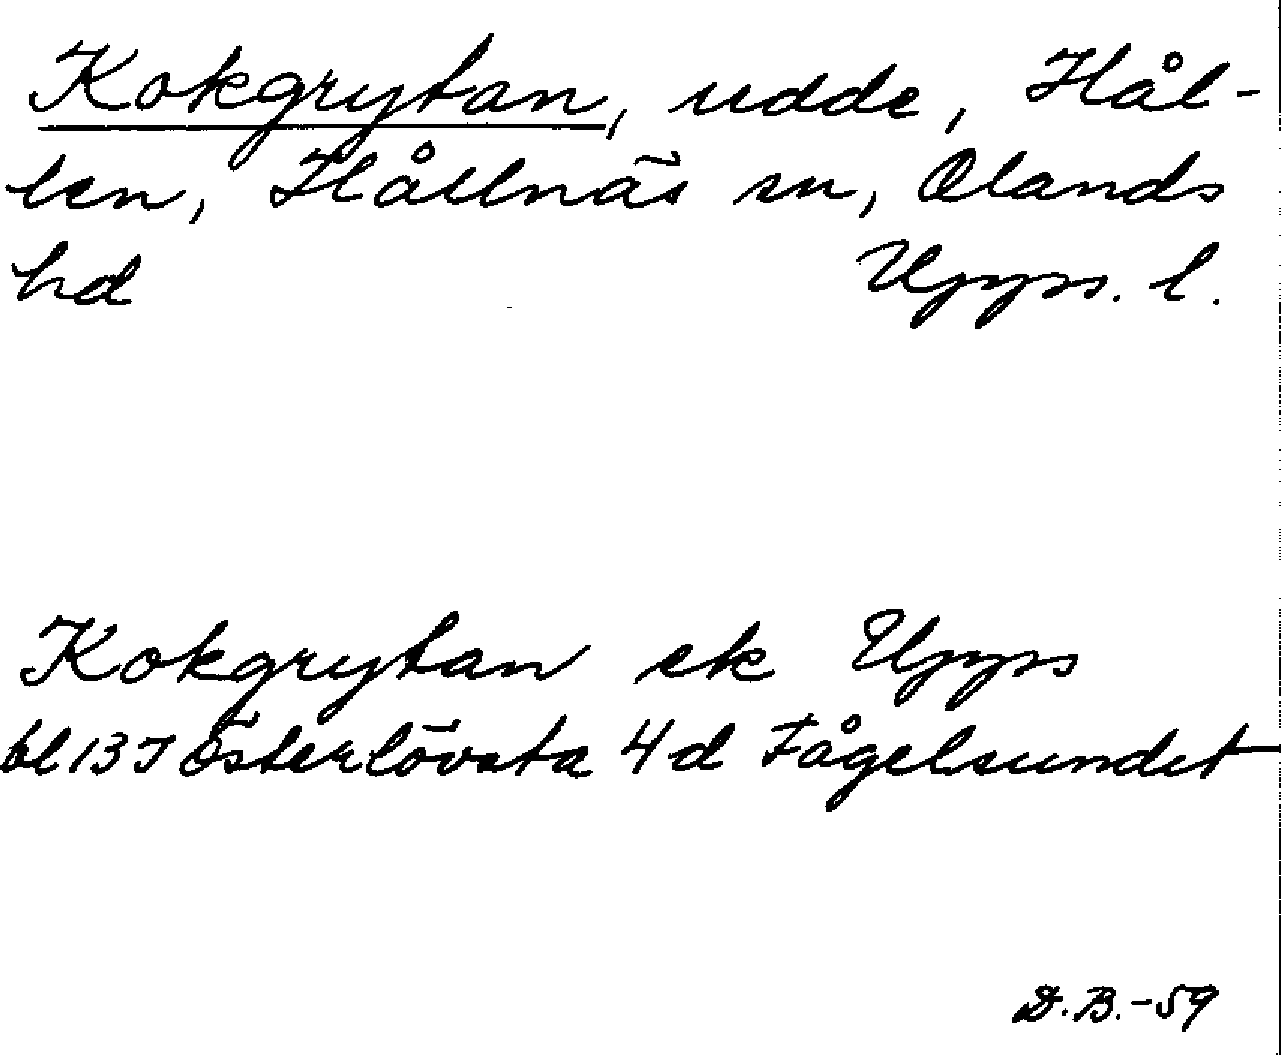 Kokgrytan, udde, Hål-
len, Hållnäs sn, Olands
hd Upps. l.
Kokgrytan ek Upps
bl 13 I Österlövsta 4d Fågelsundet
D.B.-59